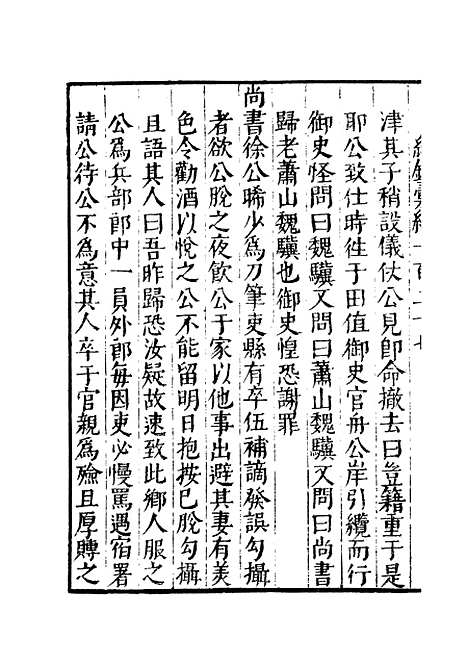 津其子稍設儀仗公見卽命撤去曰豈籍重于是
耶公致仕時徃于田值御史官舟公岸引纜而行
御史怪問曰魏驥又問曰蕭山魏驥又問曰尚書
歸老蕭山魏驥也御史惶恐謝罪
尚書徐公晞少爲刀筆吏縣有卒伍補謫發誤勾攝
者欲公脫之夜飲公于家以他事出避其妻有美
色令勸酒以悅之公不能留明日抱按已脫勾攝
且語其人曰吾昨歸恐汝疑故速致此鄉人服之
公爲兵部郎中一員外郎每因吏必慢罵遇宿署
請公待公不爲意其人卒于官親爲殮且厚賻之